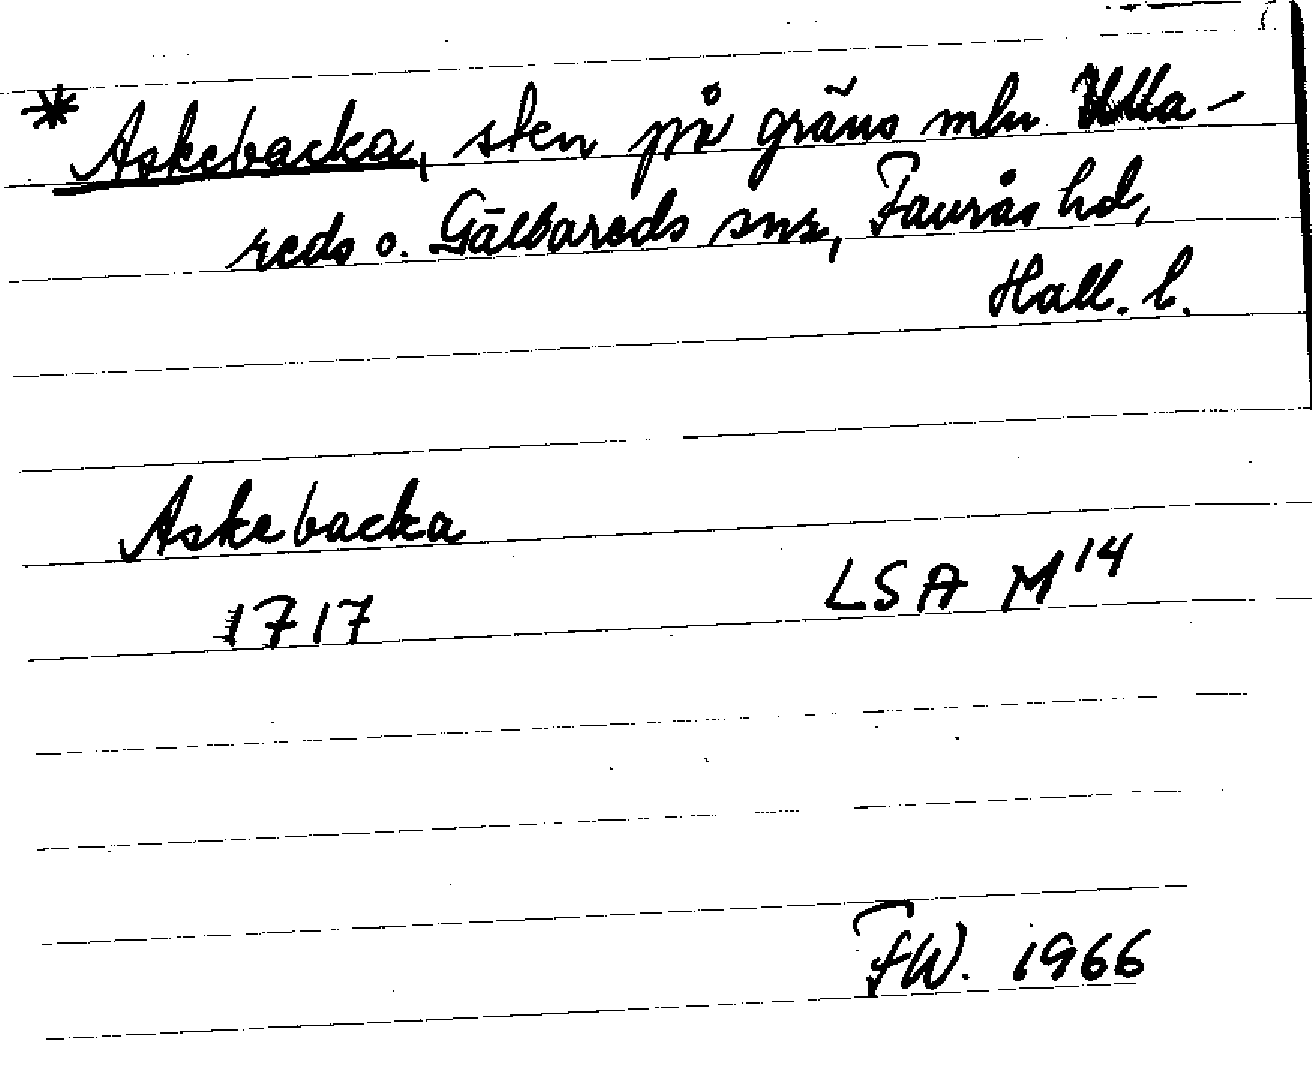 * Askebacka, sten på gräns mln Ulla-
reds o. Gällareds snr, Faurås hd,
Hall. l.
Askebacka
1717 LSA M 14
FW. 1966